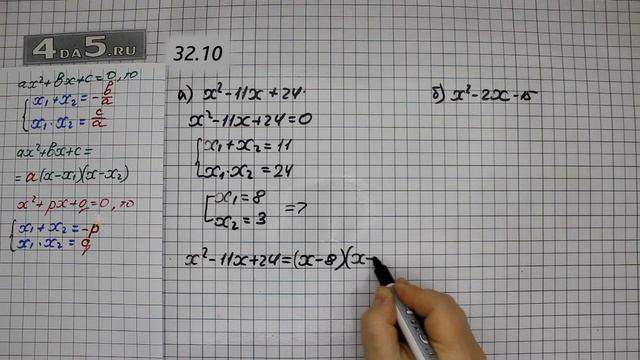 4DA5.RU
32.10
ax²+bx+c=0, то
x₁+x₂=-b/a
x₁·x₂=c/a
ax²+bx+c=
=a(x-x₁)(x-x₂)
x²+px+q=0, то
x₁+x₂=-p
x₁·x₂=q
а) x²-11x+24.
x²-11x+24=0
x₁+x₂=11
x₁·x₂=24
x₁=8
x₂=3 =>
x²-11x+24=(x-8)(x-
б) x²-2x-15